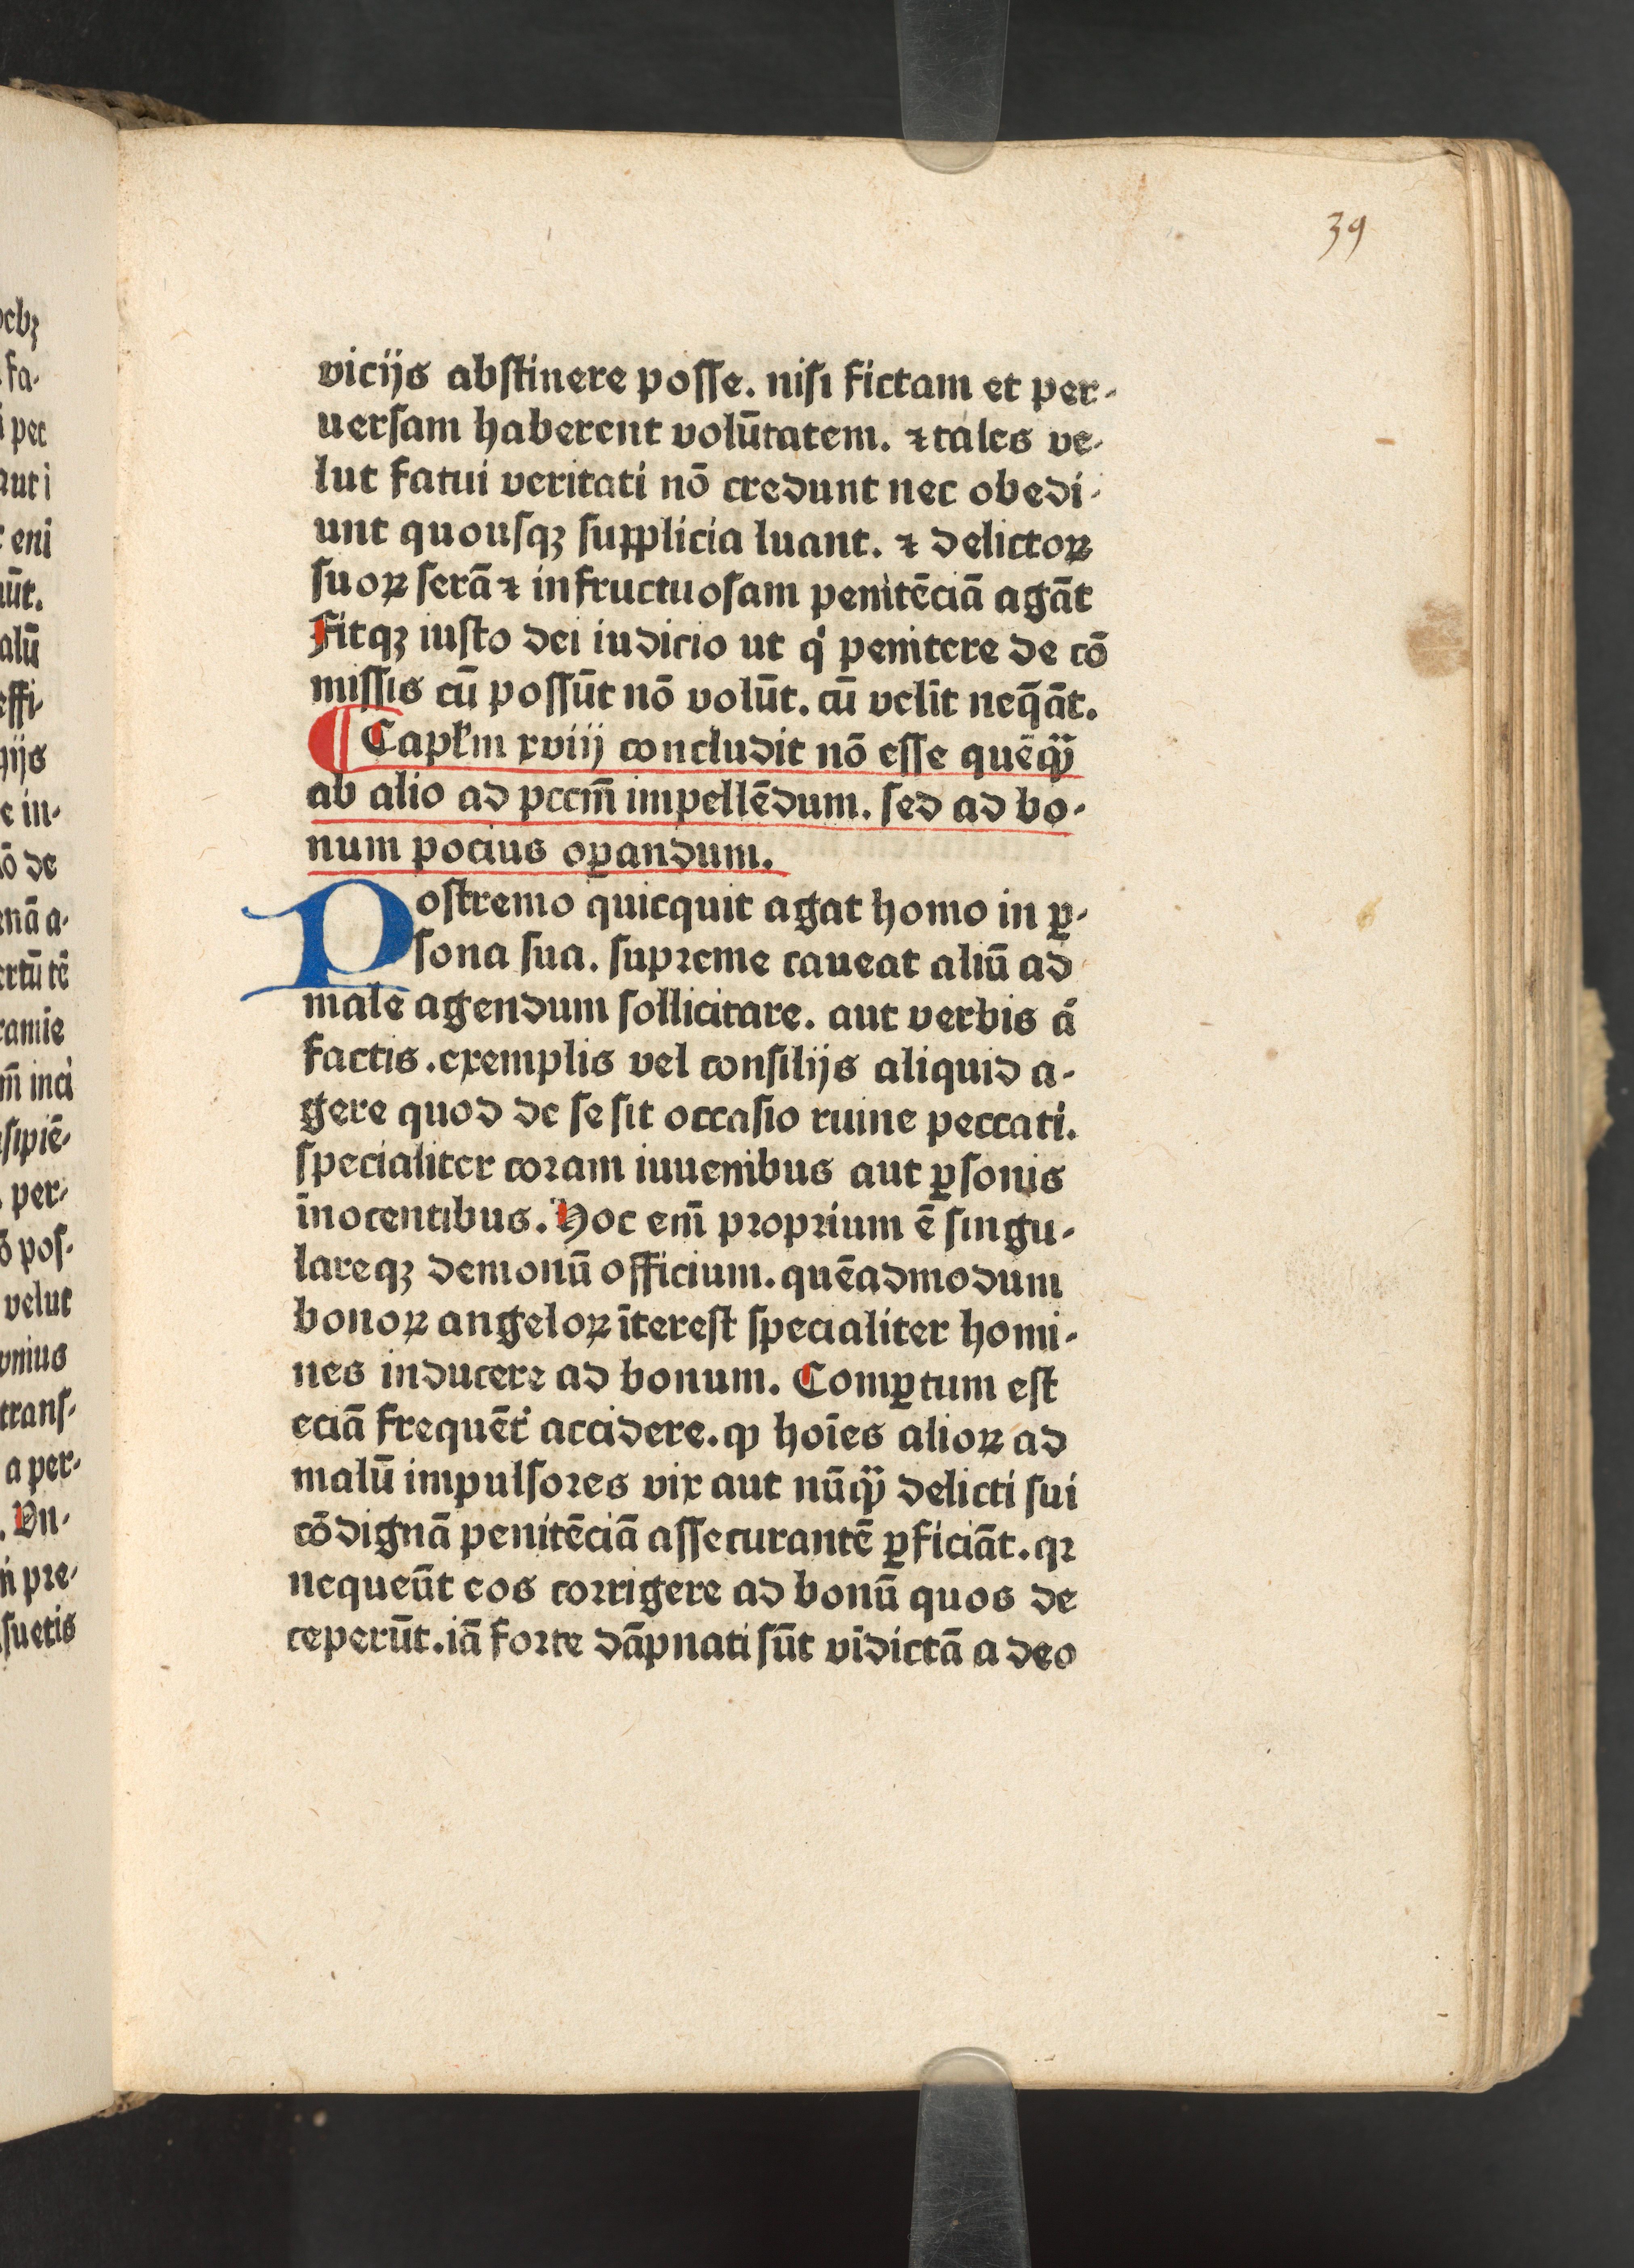 39
vicijs abstinere posse. nisi fictam et per-
uersam haberent volūtatem. ⁊ tales ve-
lut fatui veritati nō credunt nec obedi-
unt quousqꝫ supplicia luant. ⁊ delictoꝝ
suoꝝ serā ⁊ infructuosam penitēciā agāt
Fitqꝫ iusto dei iudicio ut qͥ penitere de cō
missis cū possūt nō volūt. cū velīt neq̄āt.
¶ Capl̄m xviij concludit nō esse quēqꝫ̃
ab alio ad pccm̄ impellēdum. sed ad bo-
num pocius oꝑandum.
Postremo quicquit agat homo in ꝑ-
sona sua. supreme caueat aliū ad
male agendum sollicitare. aut verbis a̅
factis. exemplis vel consilijs aliquid a-
gere quod de se sit occasio ruine peccati.
specialiter coram iuuenibus aut ꝑsonis
īnocentibus. Hoc em̄ proprium ē singu-
lareqꝫ demonū officium. quēadmodum
bonoꝝ angeloꝝ īterest specialiter homi-
nes inducere ad bonum. Comꝑtum est
eciā frequēt̉ accidere. ꝙ hoīes alioꝝ ad
malū impulsores vix aut nūꝙ̃ delicti sui
cōdignā penitēciā assecurantē ꝑficiāt. qꝛ
nequeūt eos corrigere ad bonū quos de
ceperūt. iā forte dāpnati sūt vīdictā a deo